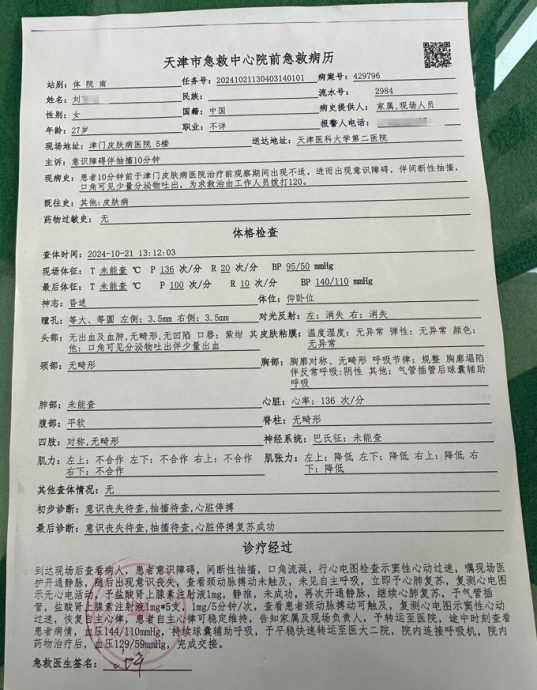 天津市急救中心院前急救病历
站别: 体 院 南 任务号: 20241021130403140101 病案号: 429796
姓名: 刘 民族: 流水号: 2984
性别: 女 国籍: 中国 病史提供人: 家属,现场人员
年龄: 27岁 职业: 不详 报警人电话:
现场地址: 津门皮肤病医院 5楼 送达地址: 天津医科大学第二医院
主诉: 意识障碍伴抽搐10分钟
现病史: 患者10分钟前于津门皮肤病医院治疗前观察期间出现不适，进而出现意识障碍，伴间断性抽搐，
口角可见少量分泌物吐出，为求救治由工作人员拨打120。
既往史: 其他: 皮肤病
药物过敏史: 无
体格检查
查体时间: 2024-10-21 13:12:03
现场体征: T 未能查 ℃ P 136 次/分 R 20 次/分 BP 95/50 mmHg
最后体征: T 未能查 ℃ P 100 次/分 R 10 次/分 BP 140/110 mmHg
神志: 昏迷 体位: 仰卧位
瞳孔: 等大、等圆 左侧: 3.5mm 右侧: 3.5mm 对光反射: 左: 消失 右: 消失
头部: 无出血及血肿,无畸形,无凹陷 口唇: 紫绀 其
他: 口角可见分泌物吐出伴少量出血
皮肤粘膜: 温度湿度: 无异常 弹性: 无异常 颜色:
无异常
颈部: 无畸形 胸部: 胸廓对称、无畸形 呼吸节律: 规整 胸廓塌陷
伴反常呼吸:阴性 其他: 气管插管后球囊辅助
呼吸
肺部: 未能查 心脏: 心率: 136 次/分
腹部: 平软 脊柱: 无畸形
四肢: 对称,无畸形 神经系统: 巴氏征: 未能查
肌力: 左上: 不合作 左下: 不合作 右上: 不合作
右下: 不合作
肌张力: 左上: 降低 左下: 降低 右上: 降低 右
下: 降低
其他查体情况: 无
初步诊断: 意识丧失待查,抽搐待查,心脏停搏
最后诊断: 意识丧失待查,抽搐待查,心脏停搏复苏成功
诊疗经过
到达现场后查看病人，患者意识障碍，间断性抽搐，口角流涎，行心电图检查示窦性心动过速，嘱现场医
护开通静脉，随后出现意识丧失，查看颈动脉搏动未触及，未见自主呼吸，立即予心肺复苏，复测心电图
示无心电活动，予盐酸肾上腺素注射液1mg，静推，未成功，再次开通静脉，继续心肺复苏，予气管插
管，盐酸肾上腺素注射液1mg*5支，1mg/5分钟/次，查看患者颈动脉搏动可触及，复测心电图示窦性心动
过速，恢复自主心律，患者自主心律可稳定维持，告知家属及现场负责人，予转运至医院，途中时刻查看
患者病情，血压144/110mmHg，持续球囊辅助呼吸，予平稳快速转运至医大二院，院内连接呼吸机，院内
药物治疗后，血压129/59mmHg，完成交接。
急救医生签名: